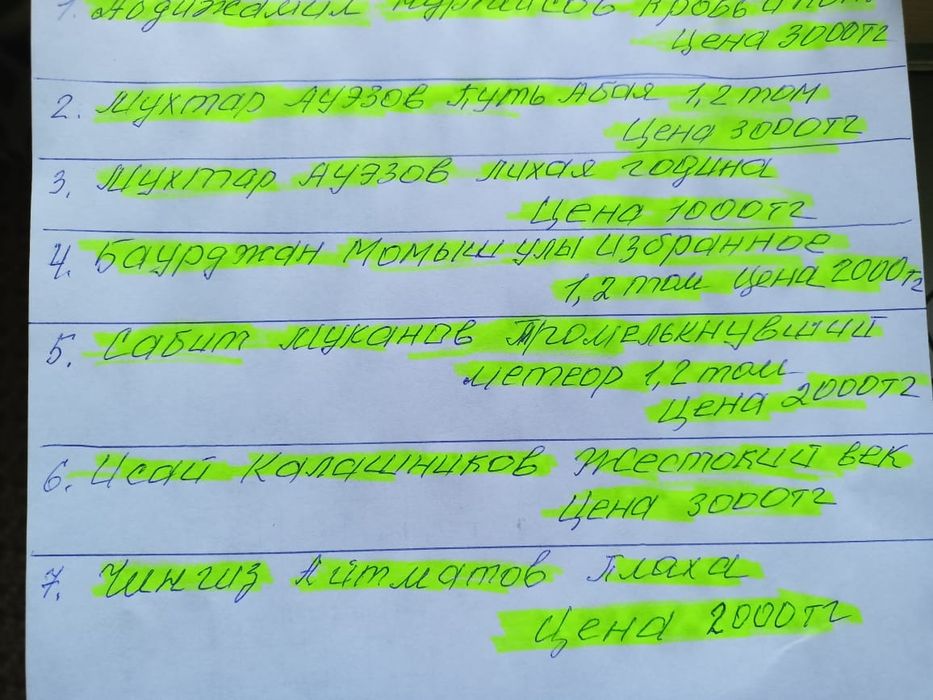 1. Абдижамил Нурпеисов Кровь и пот
Цена 3000тг
2. Мухтар Ауэзов Путь Абая 1,2 том
Цена 3000тг
3. Мухтар Ауэзов Лихая година
Цена 1000тг
4. Баурджан Момыш улы Избранное
1,2 том Цена 2000тг
5. Сабит Муканов Промелькнувший
метеор 1,2 том
Цена 2000тг
6. Исай Калашников Жестокий век
Цена 3000тг
7. Чингиз Айтматов Плаха
Цена 2000тг